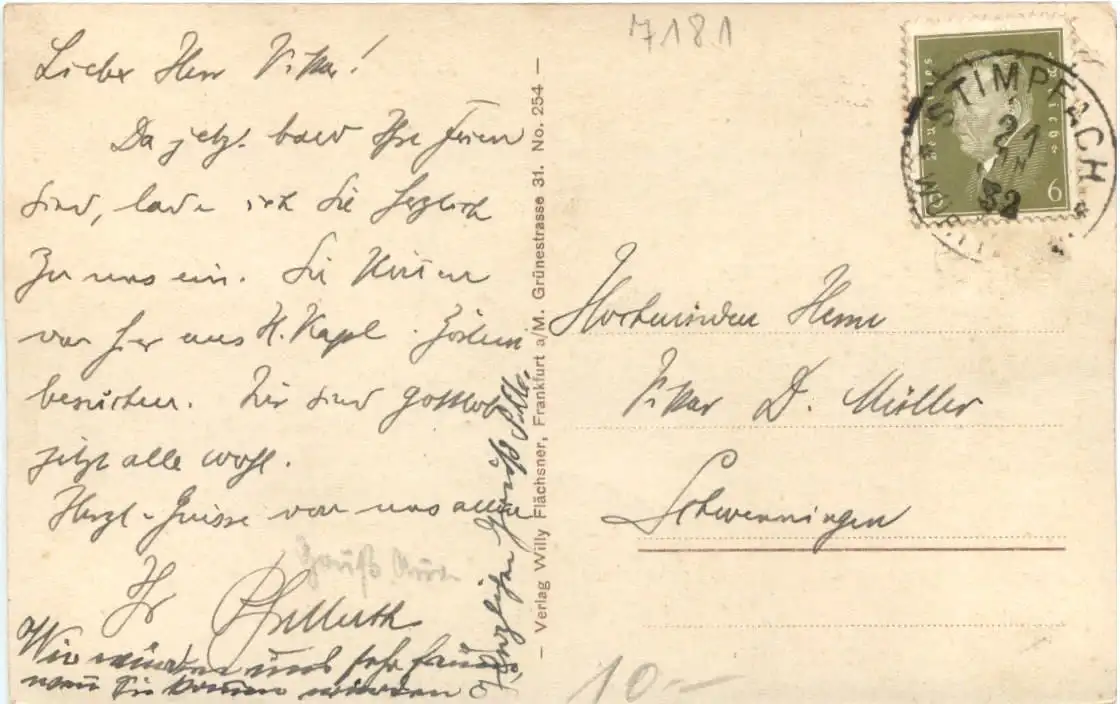 Lieber Herr Vikar!
Da jetzt bald Ihre Ferien
sind, lade ich Sie herzlich
zu uns ein. Sie können
von hier aus H. Kapl.
besuchen. Wir sind gottlob
jetzt alle wohl.
Herzl. Grüsse von uns allen
Ihr
Gruß
Wir würden uns sehr freuen
wenn Sie kommen würden
Herzlichen Gruß
- Verlag Willy Flächsner, Frankfurt a/M. Grünestrasse 31. No. 254 -
7181
Deutsches Reich
6
STIMPFACH
21
32
Hochwürden Herrn
Vikar D. Müller
Schwenningen
10.-